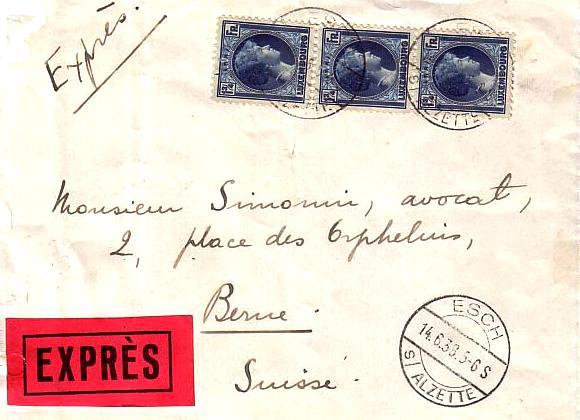 Exprès.
LUXEMBOURG
LUXEMBOURG
LUXEMBOURG
Monsieur Simonin, avocat,
2, place des Orphelins,
Berne.
Suisse.
EXPRÈS
ESCH
14.6.33.5-6 S
S/ALZETTE